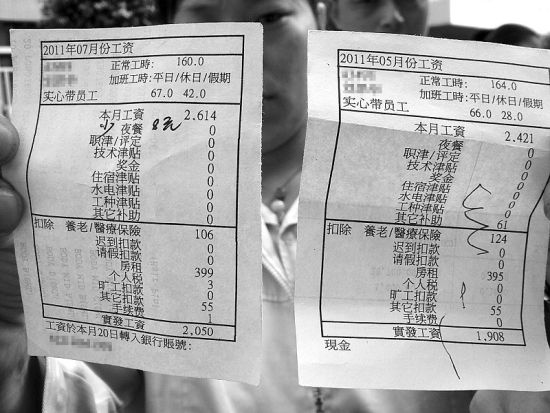 2011年07月份工资
正常工時: 160.0
加班工時:平日/休日/假期
实心带员工 67.0 42.0
本月工資 2.614
少 夜餐 8元 0
职津/评定 0
技术津贴 0
奖金 0
住宿津贴 0
水电津贴 0
工种津贴 0
其它补助 0
扣除 養老/醫療保險 106
迟到扣款 0
请假扣款 0
房租 399
个人税 3
旷工扣款 0
其它扣款 55
手续费 1
實發工資 2,050
工資於本月20日轉入銀行帳號:
2011年05月份工资
正常工時: 164.0
加班工時:平日/休日/假期
实心带员工 66.0 28.0
本月工資 2.421
夜餐 0
职津/评定 0
技术津贴 0
奖金 0
住宿津贴 0
水电津贴 0
工种津贴 0
其它补助 61
扣除 養老/醫療保險 124
迟到扣款 0
请假扣款 0
房租 395
个人税 0
旷工扣款 0
其它扣款 55
手续费 0
實發工資 1,908
現金